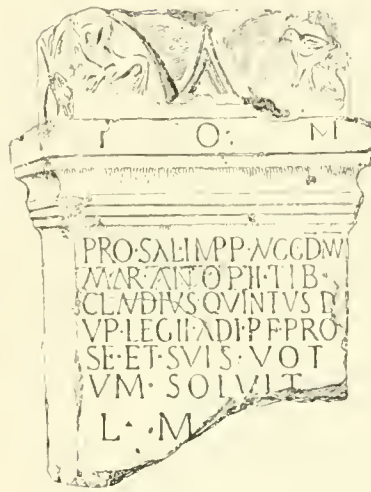 I O M
PRO·SAL·IMPP·NCCD
MAR·ANTOPH·TIB·
CLAVDIVS QVINTVS D
VP·LEGII·ADI·PFPRO·
SE·ET·SVIS·VOT
VM·SOLVIT
L·M